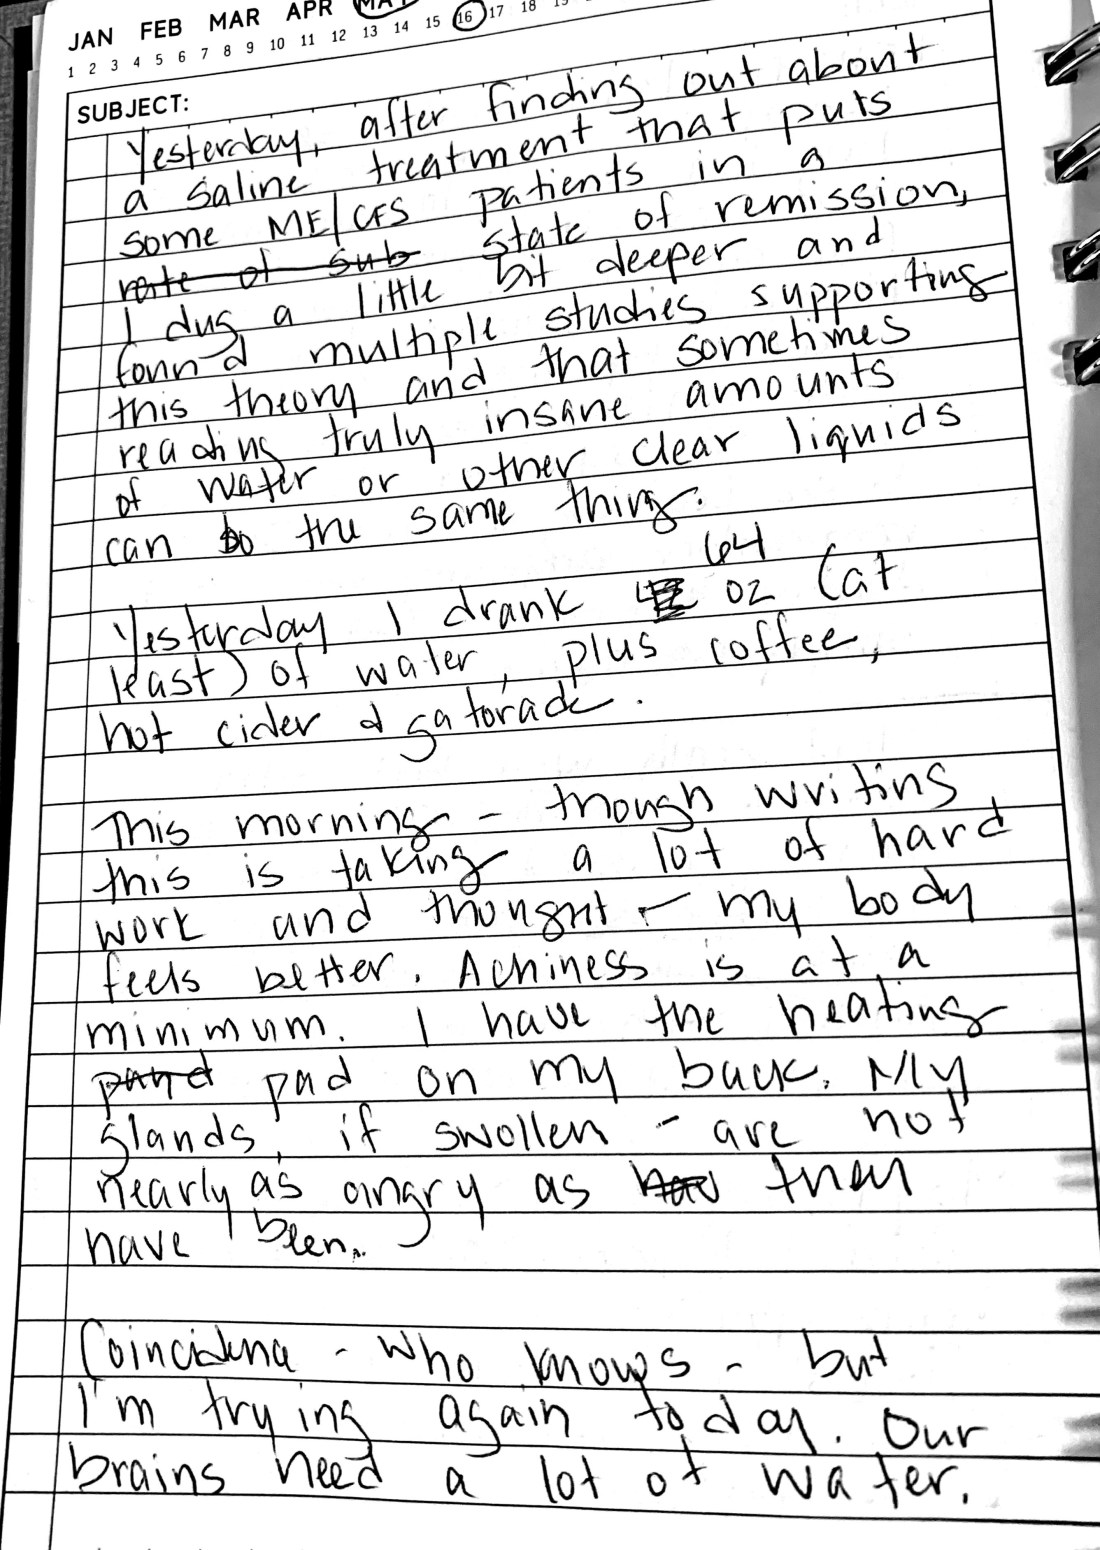 JAN FEB MAR APR MAY
1 2 3 4 5 6 7 8 9 10 11 12 13 14 15 16 17 18
SUBJECT:
Yesterday, after finding out about
a saline treatment that puts
some ME/CFS patients in a
rate of sub state of remission,
I dug a little bit deeper and
found multiple studies supporting
this theory and that sometimes
reading truly insane amounts
of water or other clear liquids
can do the same thing.
64
Yesterday I drank oz (at
least) of water, plus coffee,
hot cider & gatorade.
This morning - though writing
this is taking a lot of hard
work and thought - my body
feels better. Achiness is at a
minimum. I have the heating
pad on my back. My
glands, if swollen - are not
nearly as angry as they
have been.
Coincidence - who knows - but
I'm trying again today. Our
brains need a lot of water.